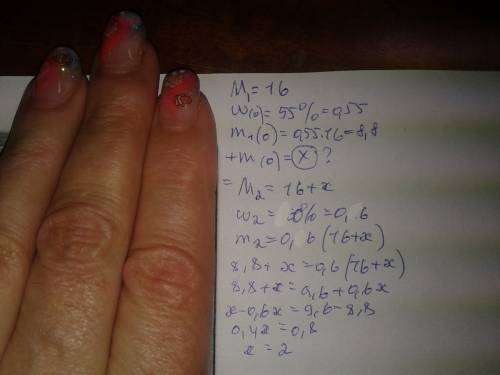 M₁ = 16
W(o) = 55% = 0,55
m₁(o) = 0,55·16 = 8,8
+ m(o) = x ?
= M₂ = 16 + x
w₂ = % = 0,6
m₂ = 0,6 (16+x)
8,8 + x = 0,6 (16+x)
8,8 + x = 9,6 + 0,6x
x - 0,6x = 9,6 - 8,8
0,4x = 0,8
x = 2